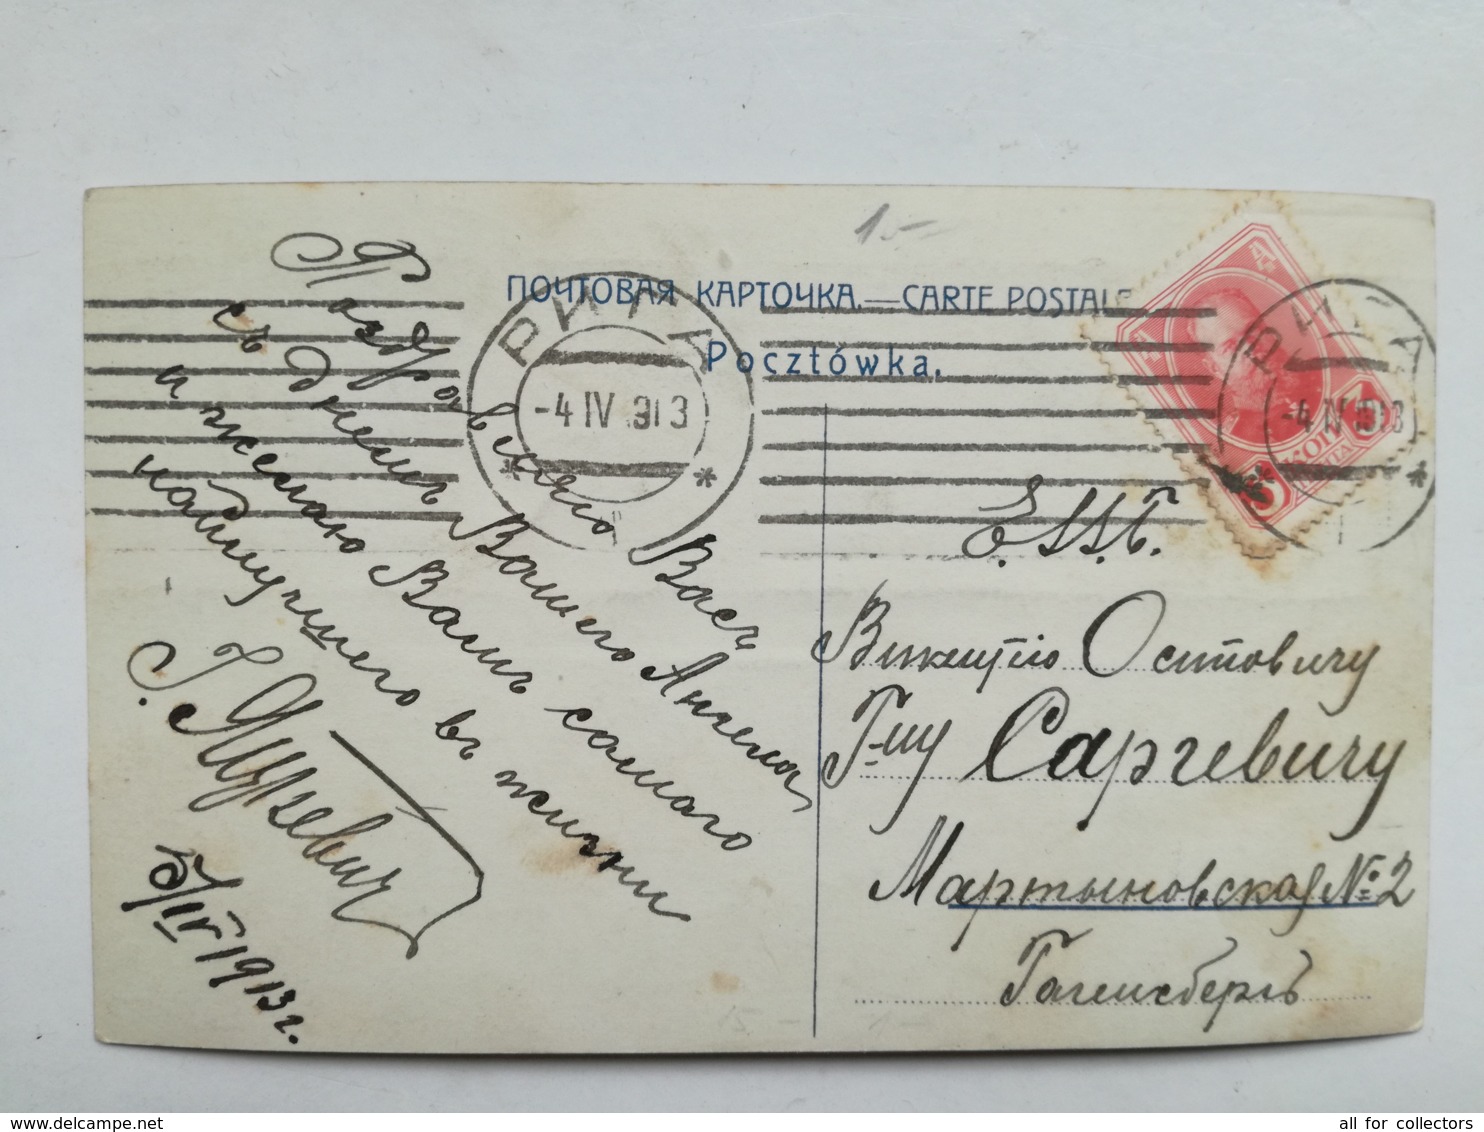 1.-
ПОЧТОВАЯ КАРТОЧКА. — CARTE POSTALE
Pocztówka.
РИГА
-4 IV 913
РИГА
-4 IV 1913
3 КОП
Поздравляю Васъ
съ днемъ Вашего Ангела,
и желаю Вамъ самаго
наилучшего въ жизни
5/IV 1913 г.
Викентію Осиповичу
Г-ну Саргевичу
Мартыновская № 2
Гагенсбергъ
all for collectors